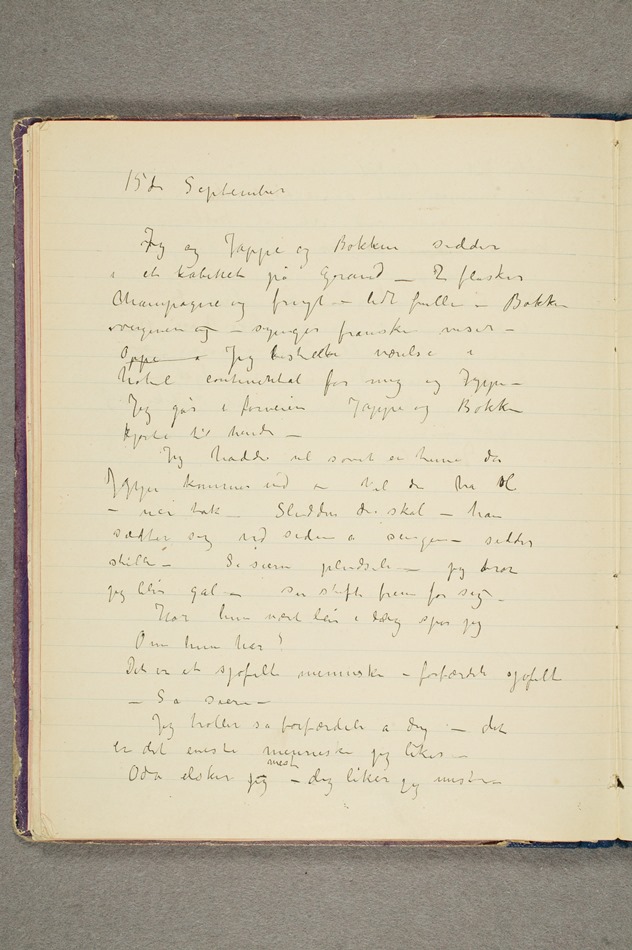 15de September
Jeg og Jappe og Bokken sidder
i et kabinett på Grand – To flasker
Champagne og frugt – lidt fulle – Bokken
– synger franske viser –
Oppe Jeg bestiller værelse i
hotel continental for mig og Jappe –
Jeg går i forveien Jappe og Bokken
hende –
Jeg hadde vel sovet en time da
Jappe kommer ind – Vil du ha øl
– nei tak – Sludder du skal – han
sætter sig ved siden a sengen – sidder
stille – Så siere pludselig – jeg tror
jeg blir gal – ser stift frem for sig –
Har hun vært lei i dag spør jeg
Om hun har!
Det er et sjofelt menneske – forfærdelig sjofelt
– Så siere –
Jeg holler så forfærdelig a dig – det
er det eneste menneske jeg liker –
Oda elsker jeg mest – dig liker jeg mest –